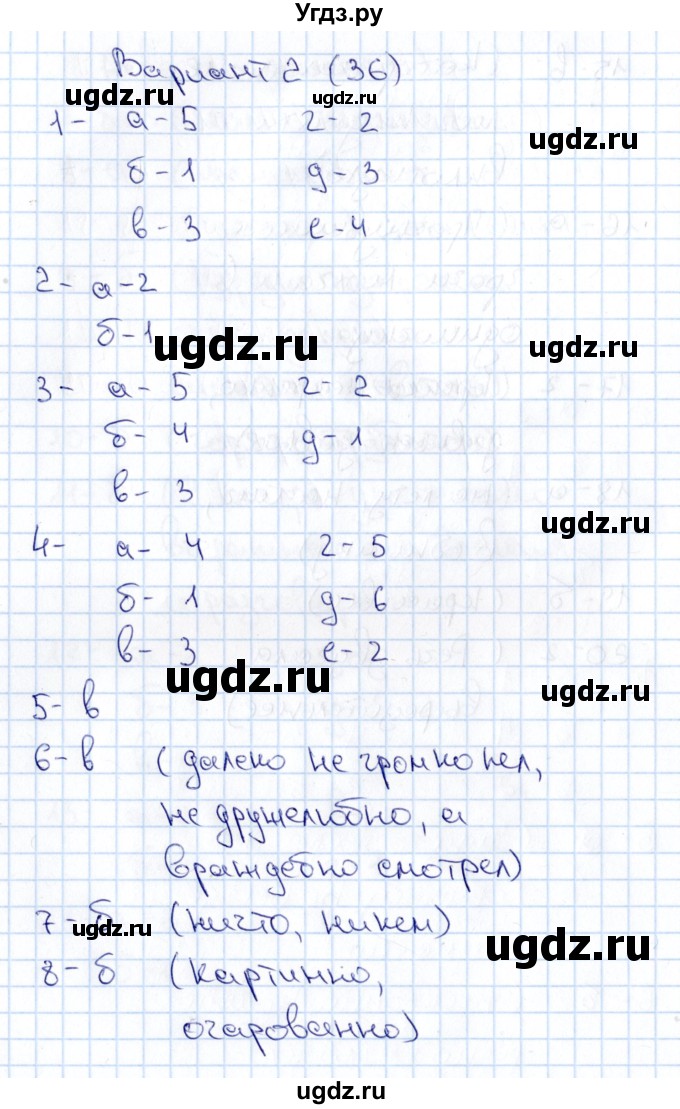 Угдз.ру
Вариант 2 (36)
ugdz.ru ugdz.ru
1- а-5 г-2
ugdz.ru
б-1 д-3
в-3 е-4
2- а-2
б-1
ugdz.ru ugdz.ru
3- а-5 г-2
б-4 д-1
в-3
ugdz.ru
4- а-4 г-5
б-1 д-6
в-3 е-2
ugdz.ru ugdz.ru
5- в
6- в (далеко не громко пел,
не дружелюбно, а
враждебно смотрел)
7-б (ничто, никем)
ugdz.ru ugdz.ru
8-б (картинно,
очарованно)
ugdz.ru